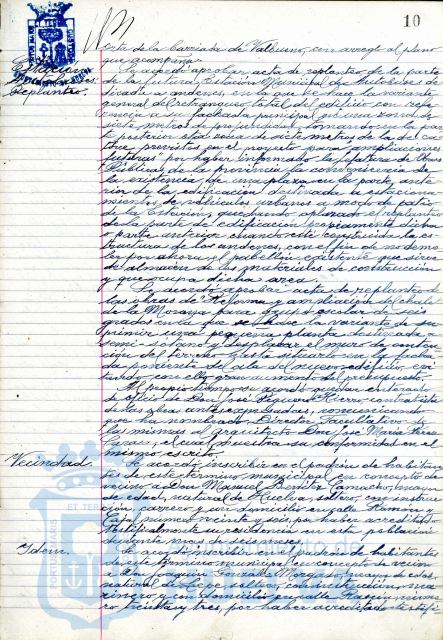 10
Norte de la Barriada de Valbueno, con arreglo al plano
que acompaña.
Se acordó aprobar, acta de replanteo de la parte
de la futura Estación Municipal de Autobuses
dedicada a andenes, en la que se hace la variante
general del retranqueo total del edificio con refe-
rencia a su fachada principal en una zona de
siete metros de profundidad, tomando en la par-
te posterior esta zona de siete metros de la de ca-
torce prevista en el proyecto para "ampliaciones
futuras" por haber informado la Jefatura de Obras
Públicas de la provincia la conveniencia de
la existencia de una plaza en la parte ante-
rior de la edificación destinada a estaciona-
mientos de vehículos urbanos a modo de patio
de la Estación, quedando aplazado el replanteo
de la parte de edificación
parte anterior cuando esté construida la es-
tructura de los andenes, con el fin de no demo-
ler por ahora el pabellón existente que sirve
de almacén de los materiales de construcción
y que ocupa dicha área.
Se acordó aprobar acta de replanteo de
las obras de "Reforma y ampliación del chalet
de la Morana para Grupo escolar de seis
grados en la que se hace la variante de su-
primir una pequeña planta destinada a
semi-sótano y desplazar el muro de conten-
ción del terreno hasta situarlo en la facha-
da posterior del ala del nuevo edificio, evi-
tando con ello gran aumento del presupuesto.
Al propio tiempo se acordó quedar enterado
de oficio de Don José Figueroa Hierro, contratista
de las obras antes expresadas, comunicando
que ha nombrado Director Facultativo de
las mismas al Arquitecto Don José María Pérez
el cual muestra su conformidad en el
mismo escrito.
Replanteo.
Vecindad.
Se acordó inscribir en el padrón de habitan-
tes de este término municipal en concepto de
vecino a Don Manuel Benítez Camacho, mayor
de edad, natural de Huelva, soltero, con instruc-
ción, y con domicilio en calle Ramón y
Cajal número veinte y seis, por haber acreditado
certificalmente su residencia en esta población
durante más de seis meses.
Idem.
Se acordó inscribir en el padrón de habitantes
de este término municipal en concepto de vecino
a Don Joaquín González Morgado, mayor de edad,
natural de
y con domicilio en calle Rascón núme-
ro treinta y tres, por haber acreditado